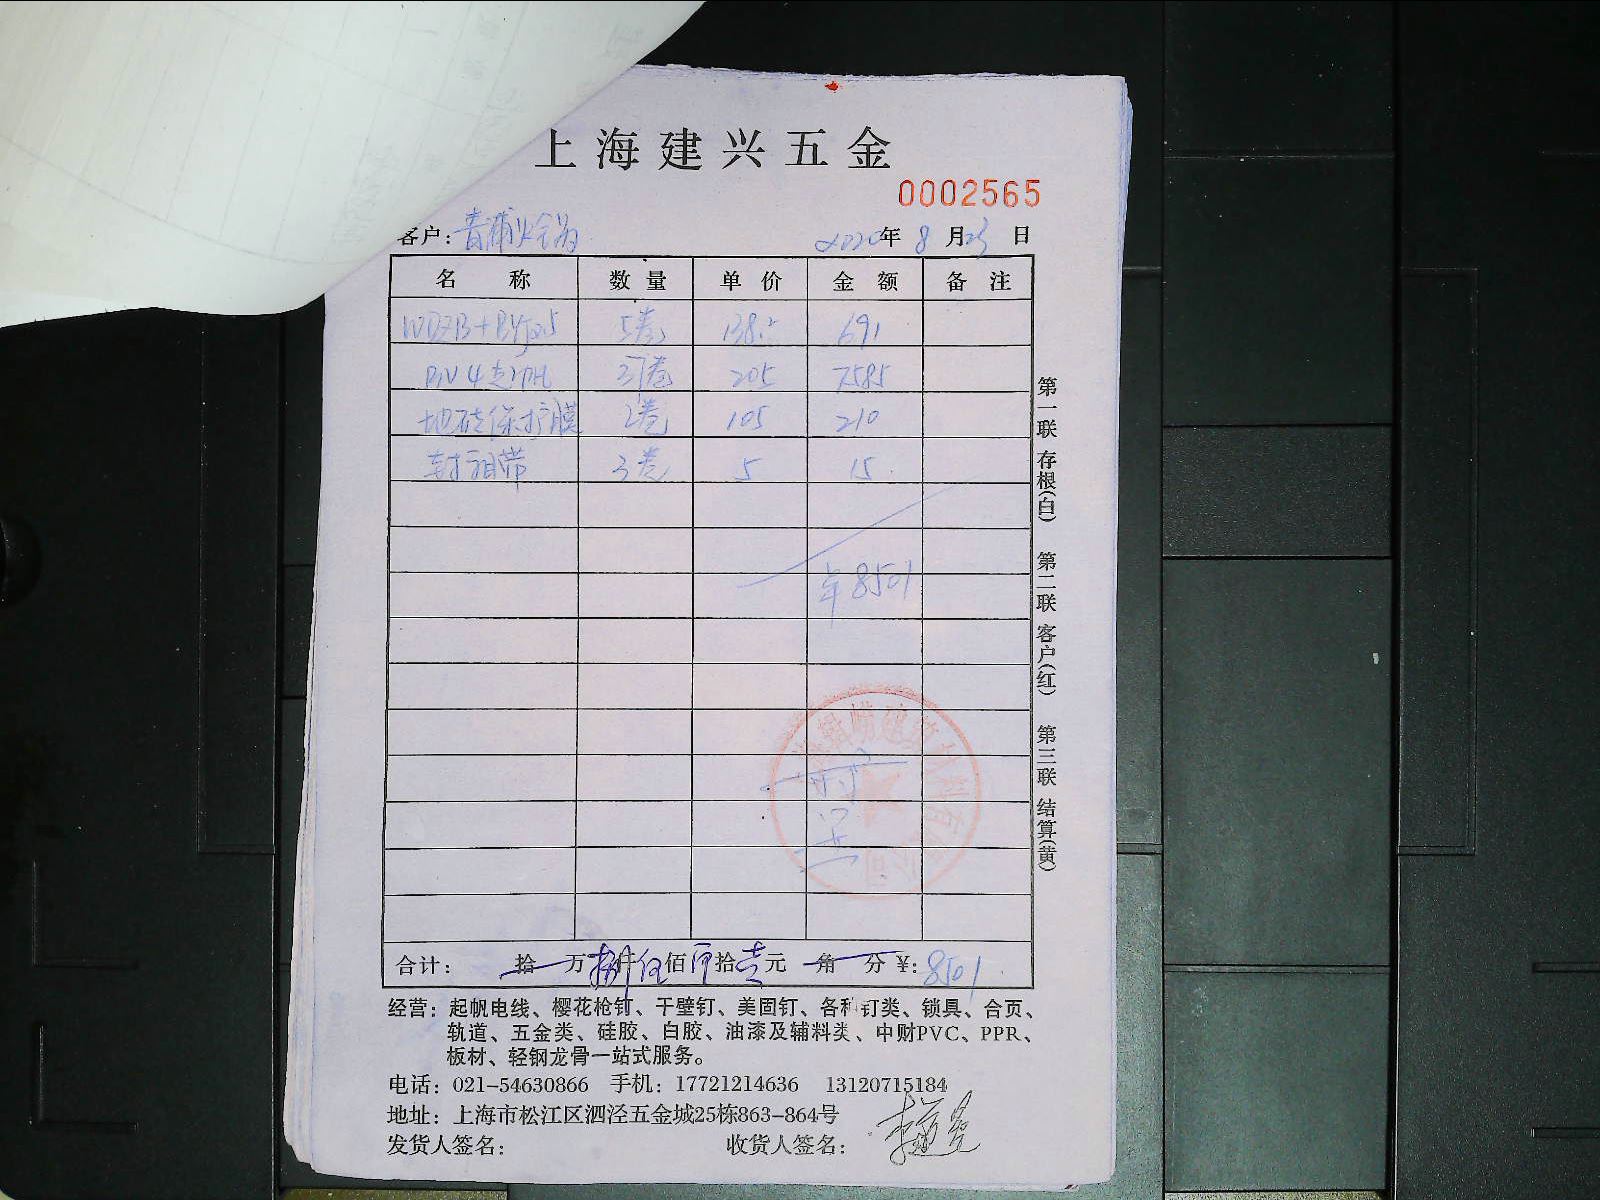 上海建兴五金
0002565
客户：青浦火锅 2020年8月23日
名称 数量 单价 金额 备注
WDZB+BYJ2.5 5卷 138.2 691
BV4 37卷 205 7585
地砖保护膜 2卷 105 210
封箱带 3卷 5 15
8501
合计： 拾 万捌仟伍佰零拾壹元 角 分￥：8501
经营：起帆电线、樱花枪钉、干壁钉、美固钉、各种钉类、锁具、合页、
轨道、五金类、硅胶、白胶、油漆及辅料类、中财PVC、PPR、
板材、轻钢龙骨一站式服务。
电话：021-54630866 手机：17721214636 13120715184
地址：上海市松江区泗泾五金城25栋863-864号
发货人签名： 收货人签名：
第一联 存根(白) 第二联 客户(红) 第三联 结算(黄)